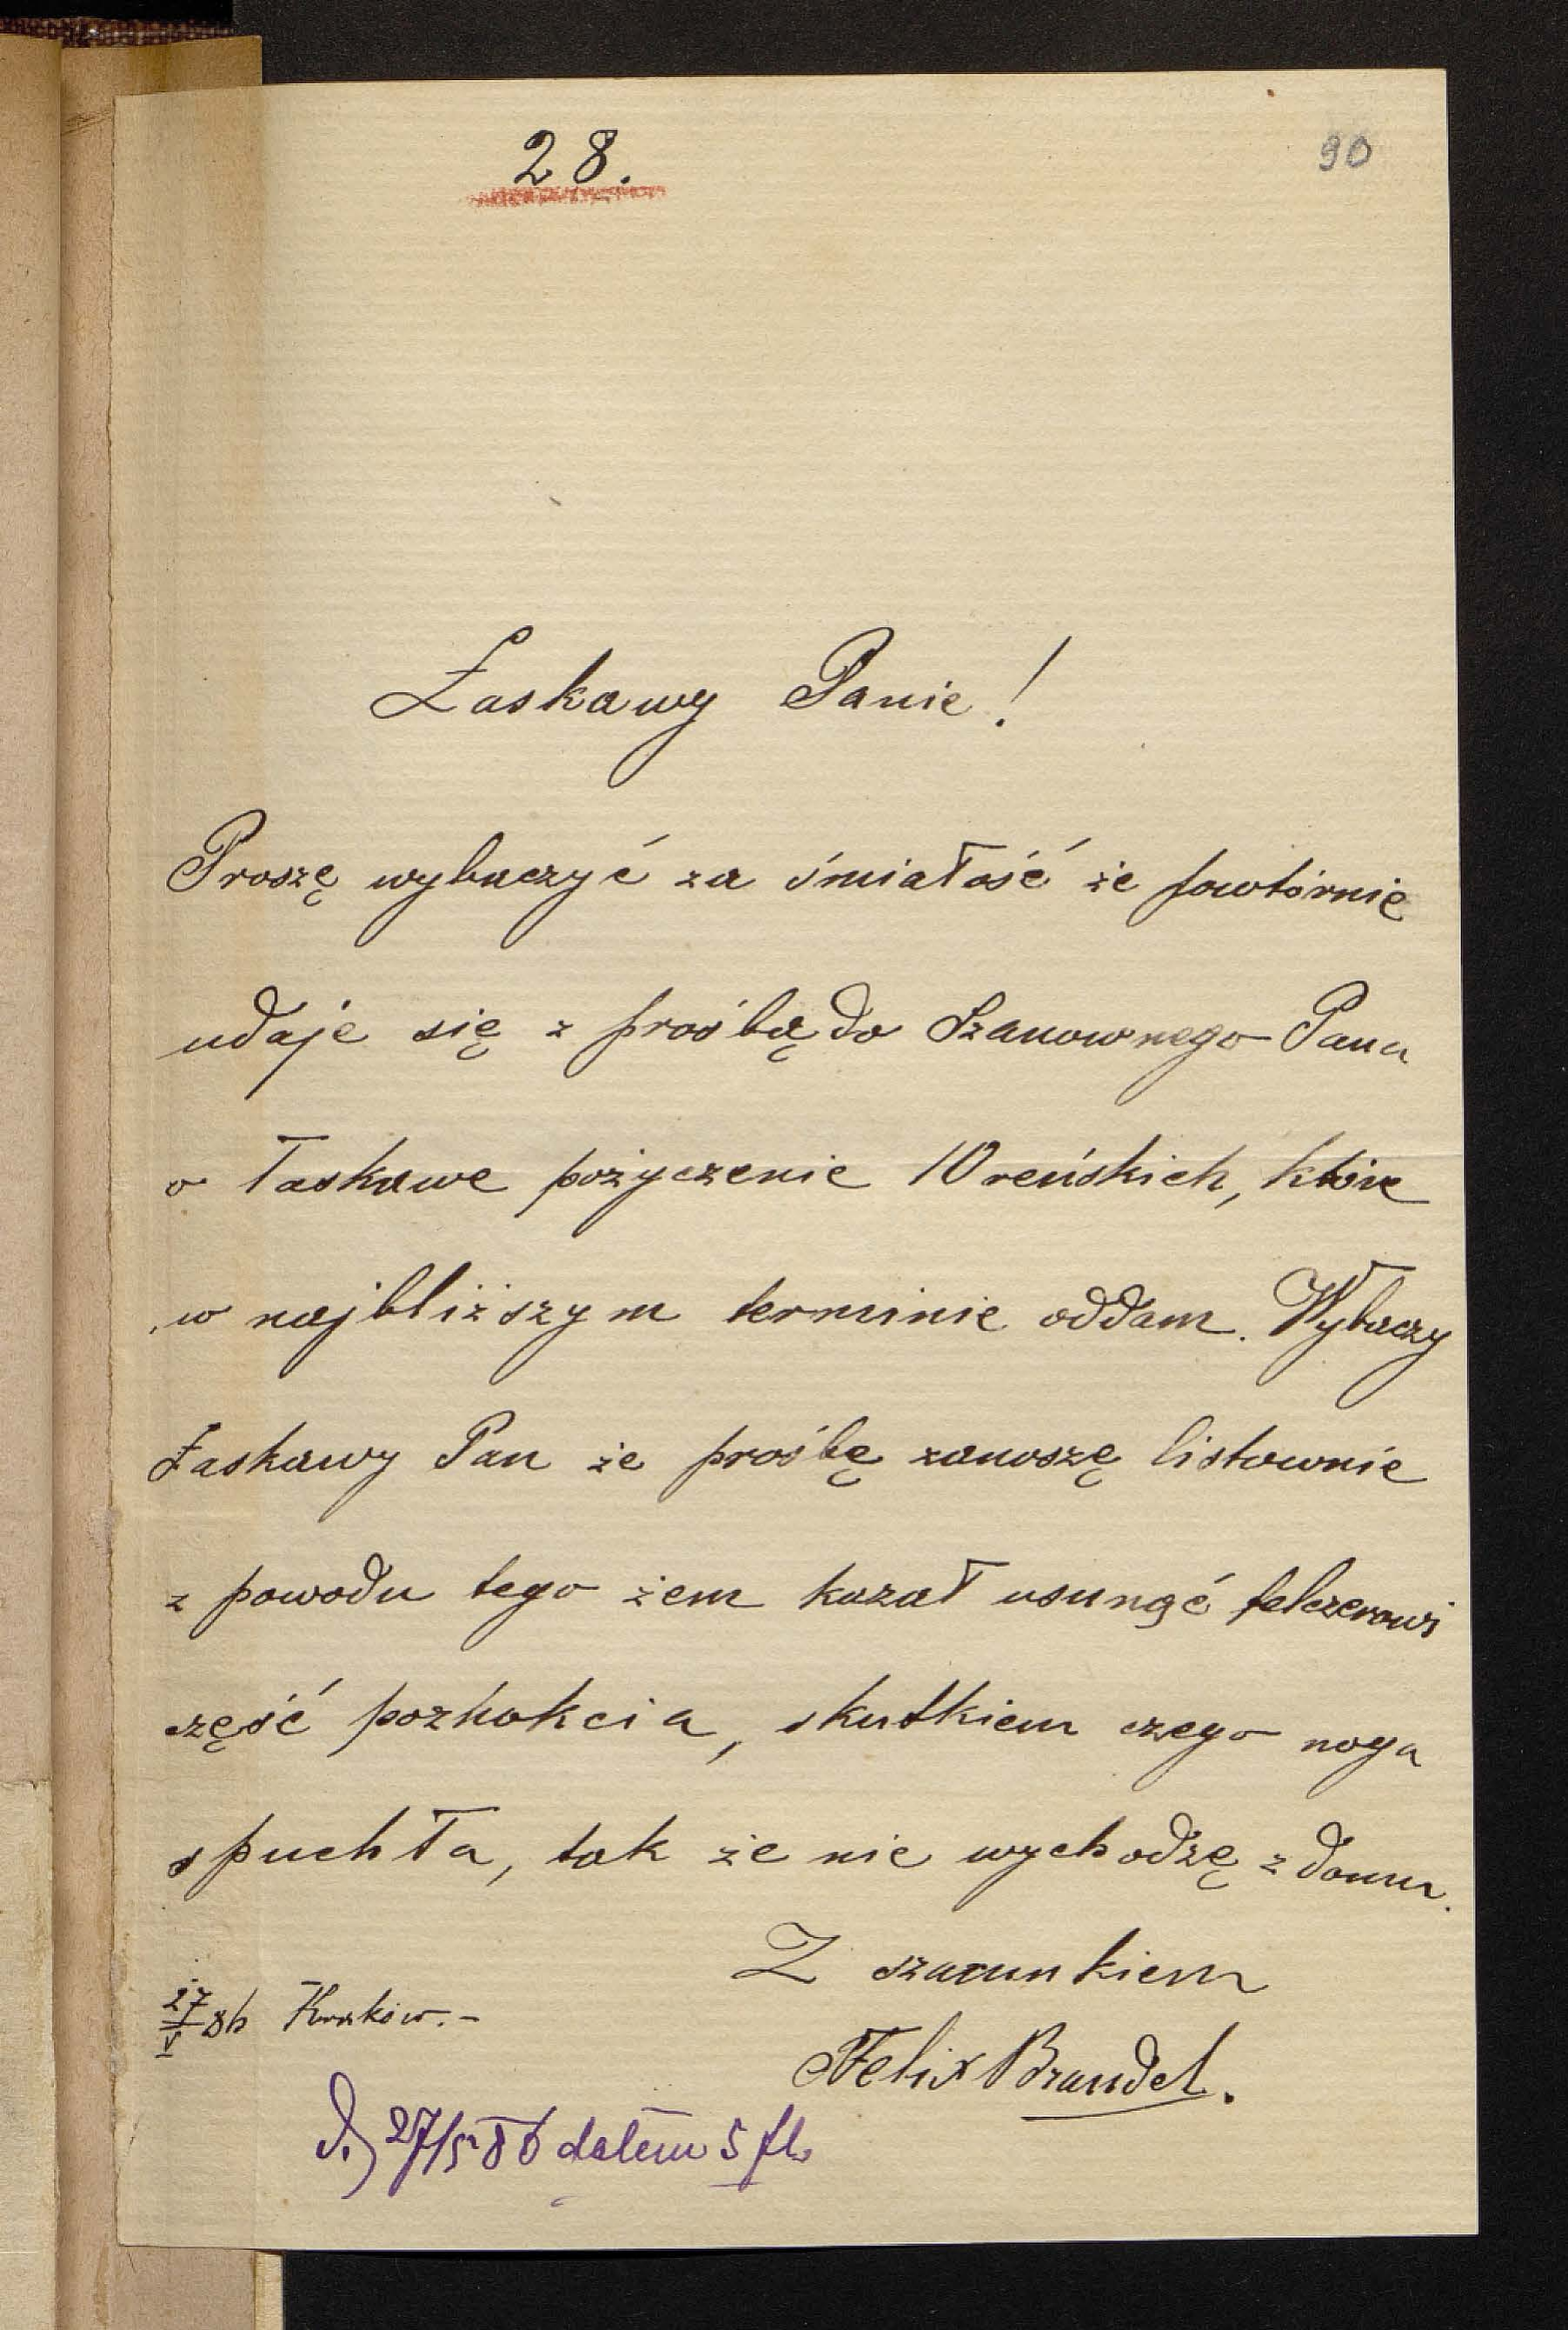 28.
90
Łaskawy Panie!
Proszę wybaczyć za śmiałość że powtórnie
udaje się z prośbą do Szanownego Pana
o łaskawe pożyczenie 10 reńskich, które
w najbliższym terminie oddam. Wybaczy
Łaskawy Pan że prośbę zanoszę listownie
z powodu tego żem kazał usunąć felczerowi
część pazhokcia, skutkiem czego noga
spuchła, tak że nie wychodzę z domu.
Z szacunkiem
27/V 86 Kraków.-
Felix Brandel.
d. 27/5 86 dałem 5 fl.